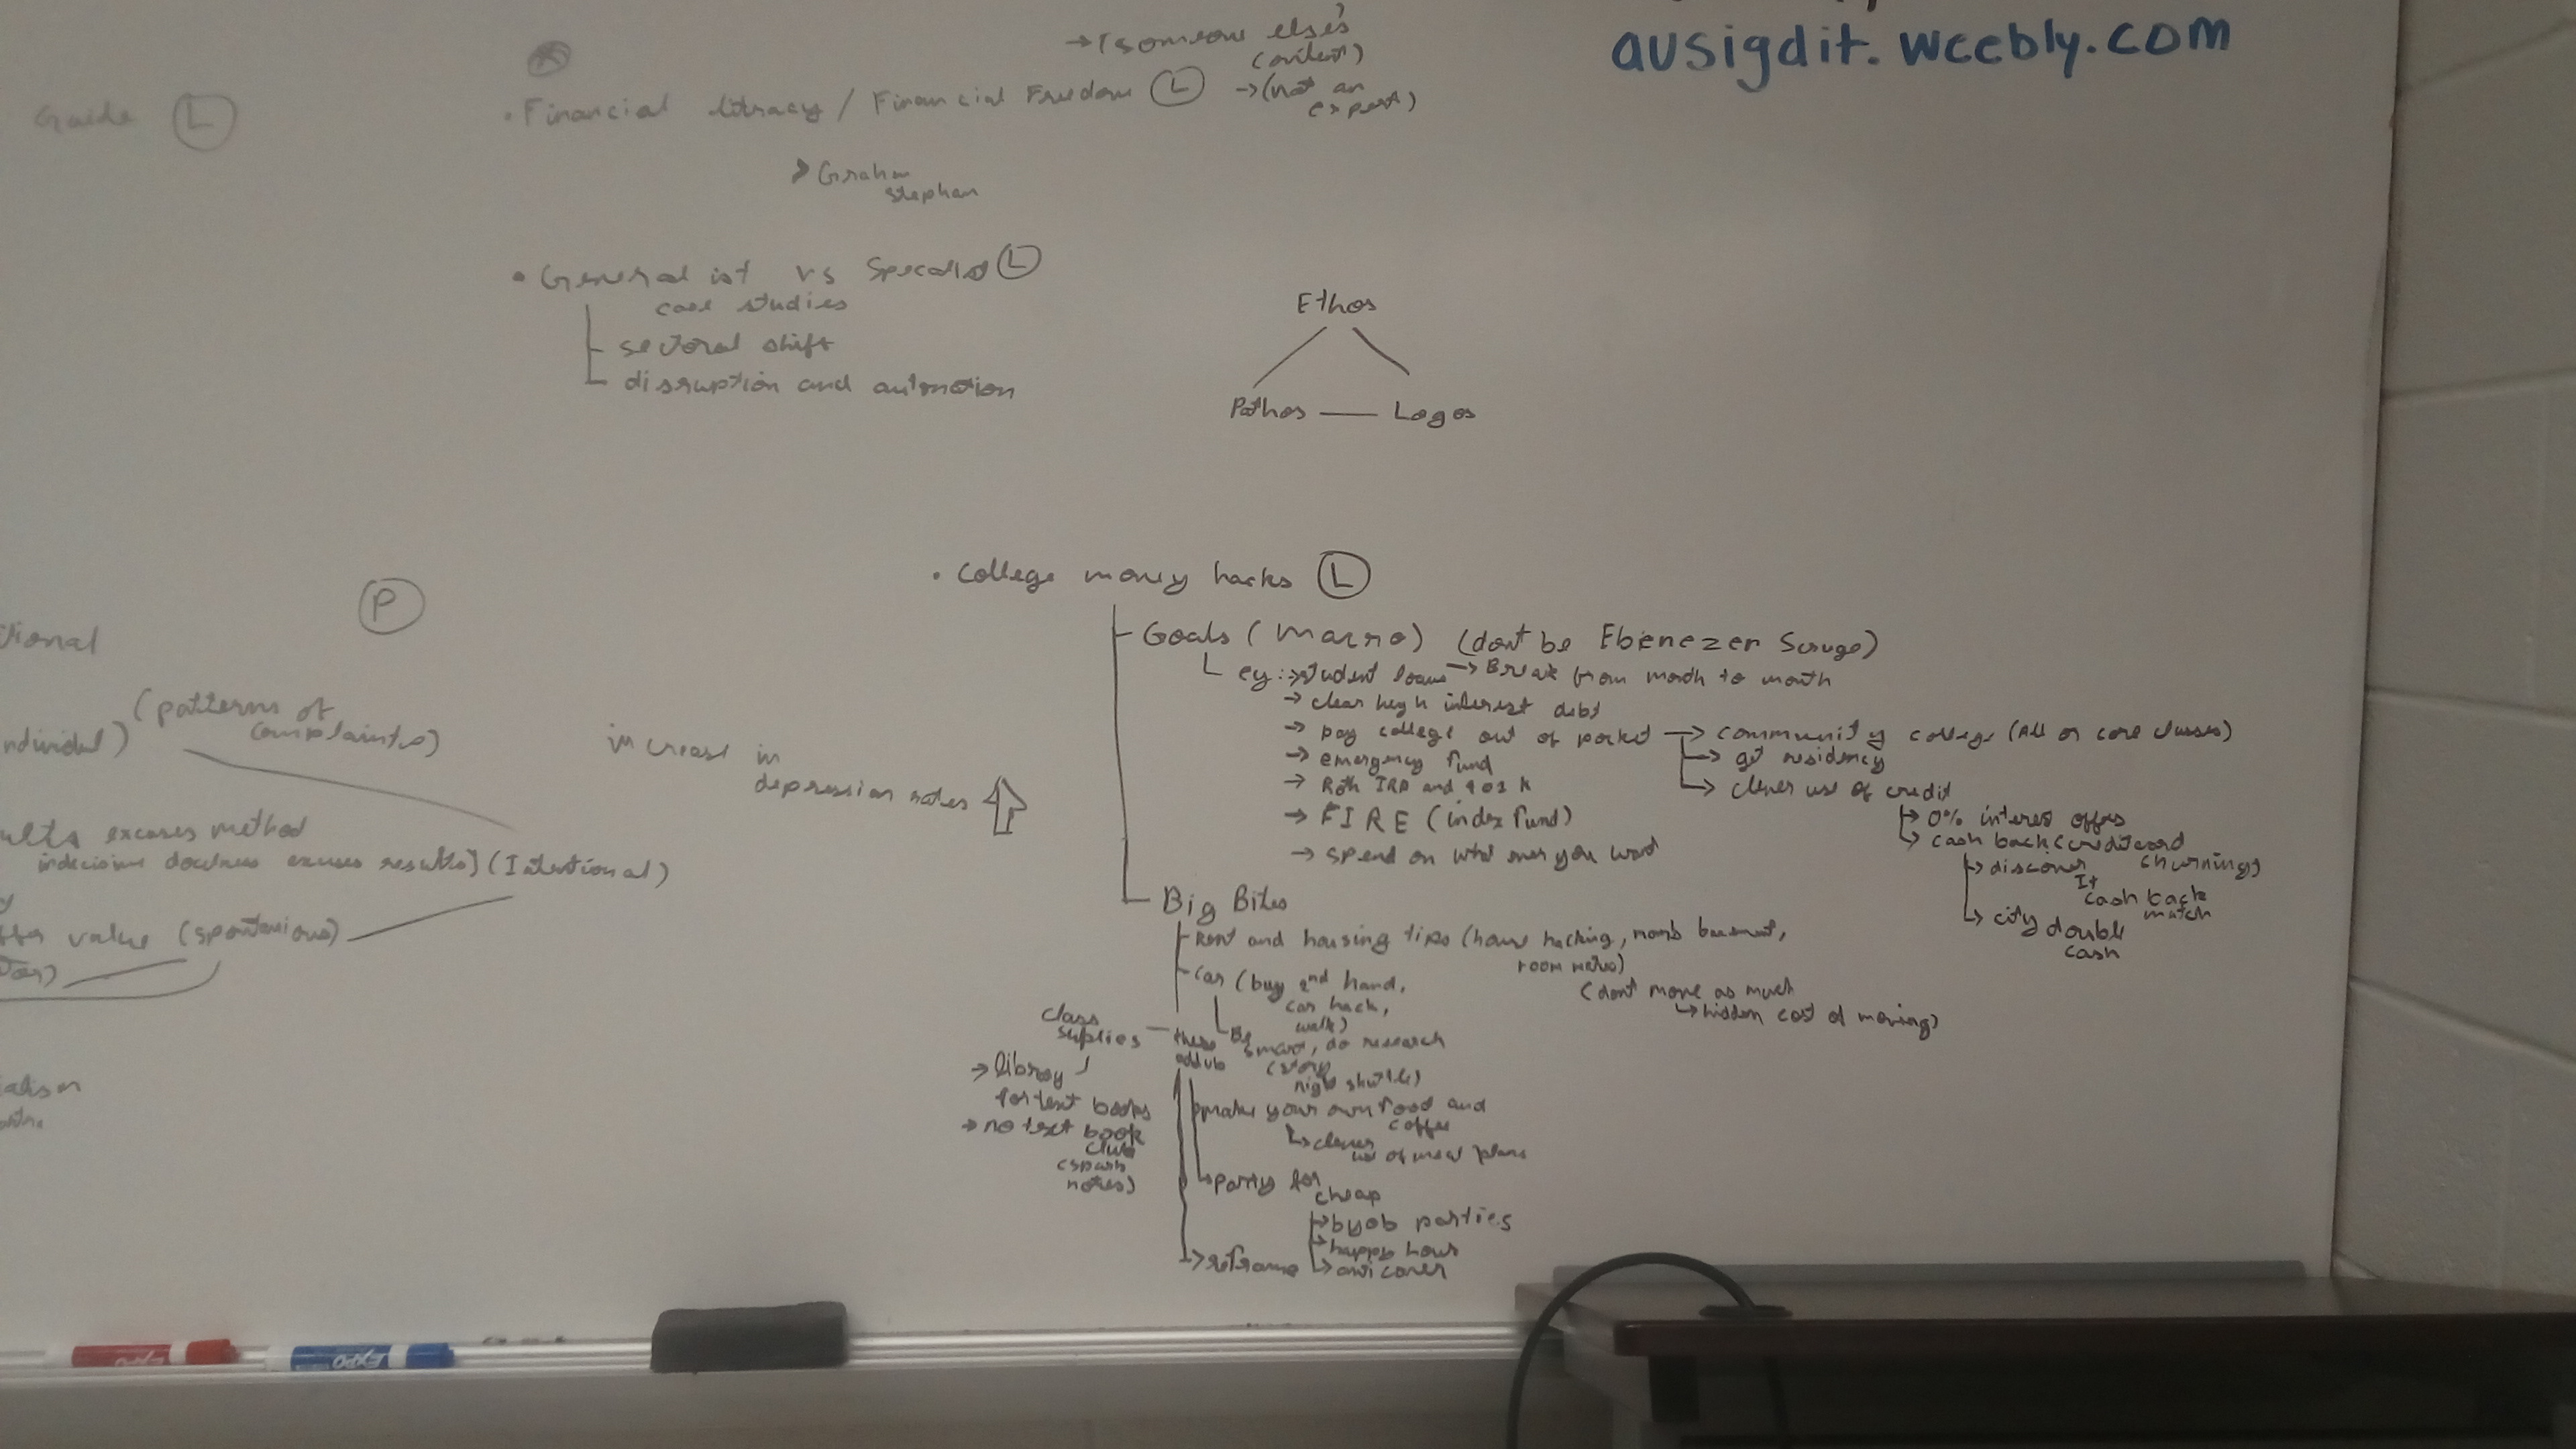 ausigdit.weebly.com
→ (someone else's
content)
Guide (L)
• Financial litracy / Financial Freedom (L) → (not an
expert)
> Graham
Stephan
• Generalist vs Specalist (L)
case studies
sectoral shift
disruption and automation
Ethos
Pathos — Logos
• College money hacks (L)
(P)
tional
Goals (Macro) (dont be Ebenezer Scruge)
eg: → student loans → Break from month to month
→ clear high interest debt
→ pay college out of pocket → community college (All or core classes)
→ get residency
→ clever use of credit
→ emergency fund
→ Roth IRA and 401k
→ FIRE (index fund)
→ spend on what ever you want
→ 0% interest offers
→ cash back (credit card
churning)
→ discover
It
cash back
match
→ city double
cash
(patterns of
complaints)
ndividal)
increase in
depression rates
ults excuses method
indecisive doctness excuses results] (Intentional)
value (spontanious)
Big Bites
Rent and housing tips (house hacking, moms basement,
room mates)
(dont move as much
→ hidden cost of moving)
Car (buy 2nd hand,
car hack,
walk)
Be
smart, do research
(story
night shuttle)
class
suplies
these
add up
→ library
for text books
→ no text book
club
(spark
notes)
make your own food and
coffee
→ clever
use of meal plans
party for
cheap
→ byob parties
→ happy hour
→ reframe
EXPO
EXPO